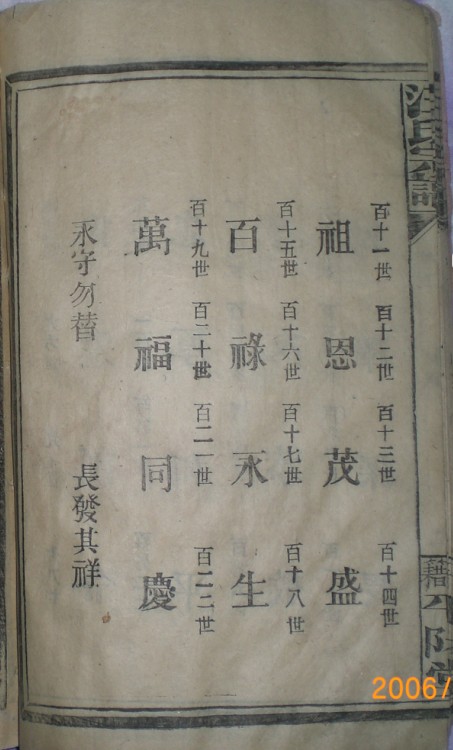 汪氏宗譜
百十一世 百十二世 百十三世 百十四世
祖恩茂盛
百十五世 百十六世 百十七世 百十八世
百祿永生
百十九世 百二十世 百二一世 百二二世
萬福同慶
永守勿替 長發其祥
平陽堂
2006/